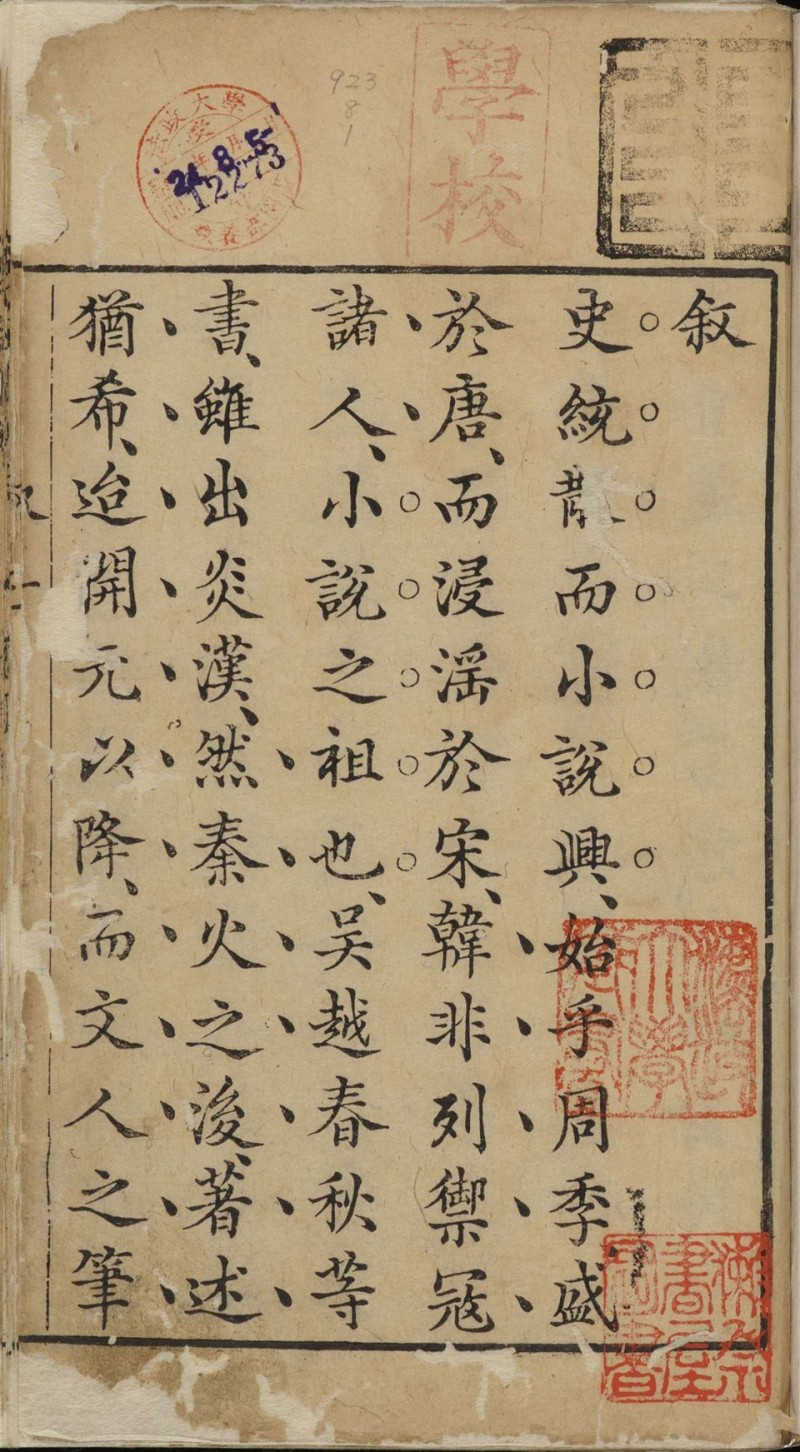 叙
史統散而小說興、始乎周季、盛
於唐、而浸淫於宋、韓非列禦冦
諸人、小說之祖也、吴越春秋等
書、雖出炎漢、然秦火之後、著述
猶希、迨開元以降、而文人之筆
學校
923
8
1
政大學
24.8.5
12273